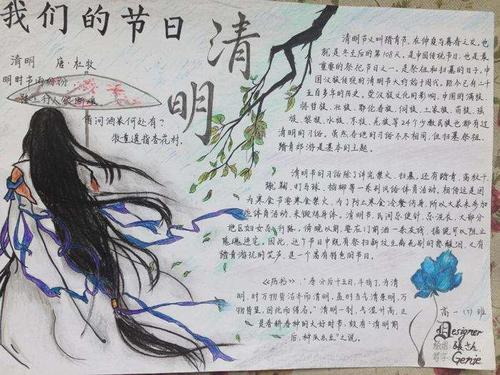 我们的节日
清明
清明 唐·杜牧
明时节雨纷纷
路上行人欲断魂
借问酒家何处有？
牧童遥指杏花村。
清明节又叫踏青节，在仲春与暮春之交，也
就是冬至后的第108天，是中国传统节日，也是最
重要的祭祀节日之一，是祭祖和扫墓的日子。中
国汉族传统的清明节大约始于周代，距今已有二千
五百多年的历史。受汉族文化的影响，中国的满族、
赫哲族、壮族、鄂伦春族、侗族、土家族、苗族、瑶
族、黎族、水族、京族、羌族等24个少数民族也都有过
清明节的习俗。虽然各地习俗不尽相同，但扫墓祭祖、
踏青郊游是基本的主题。
清明节的习俗除了讲究禁火、扫墓，还有踏青、荡秋千、
蹴鞠、打马球、插柳等一系列风俗体育活动。相传这是因
为寒食节要寒食禁火，为了防止寒食冷餐伤身，所以大家来参加
些体育活动，来锻炼身体。
《历书》：“春分后十五日，斗指丁，为清
明，时万物皆洁齐而清明，盖时当气清景明，万
物皆显，因此得名。”清明一到，气温升高，正
是春耕春种的大好时节，故有“清明前
后，种瓜点豆”之说。
高一(7)班
Designer
Genie